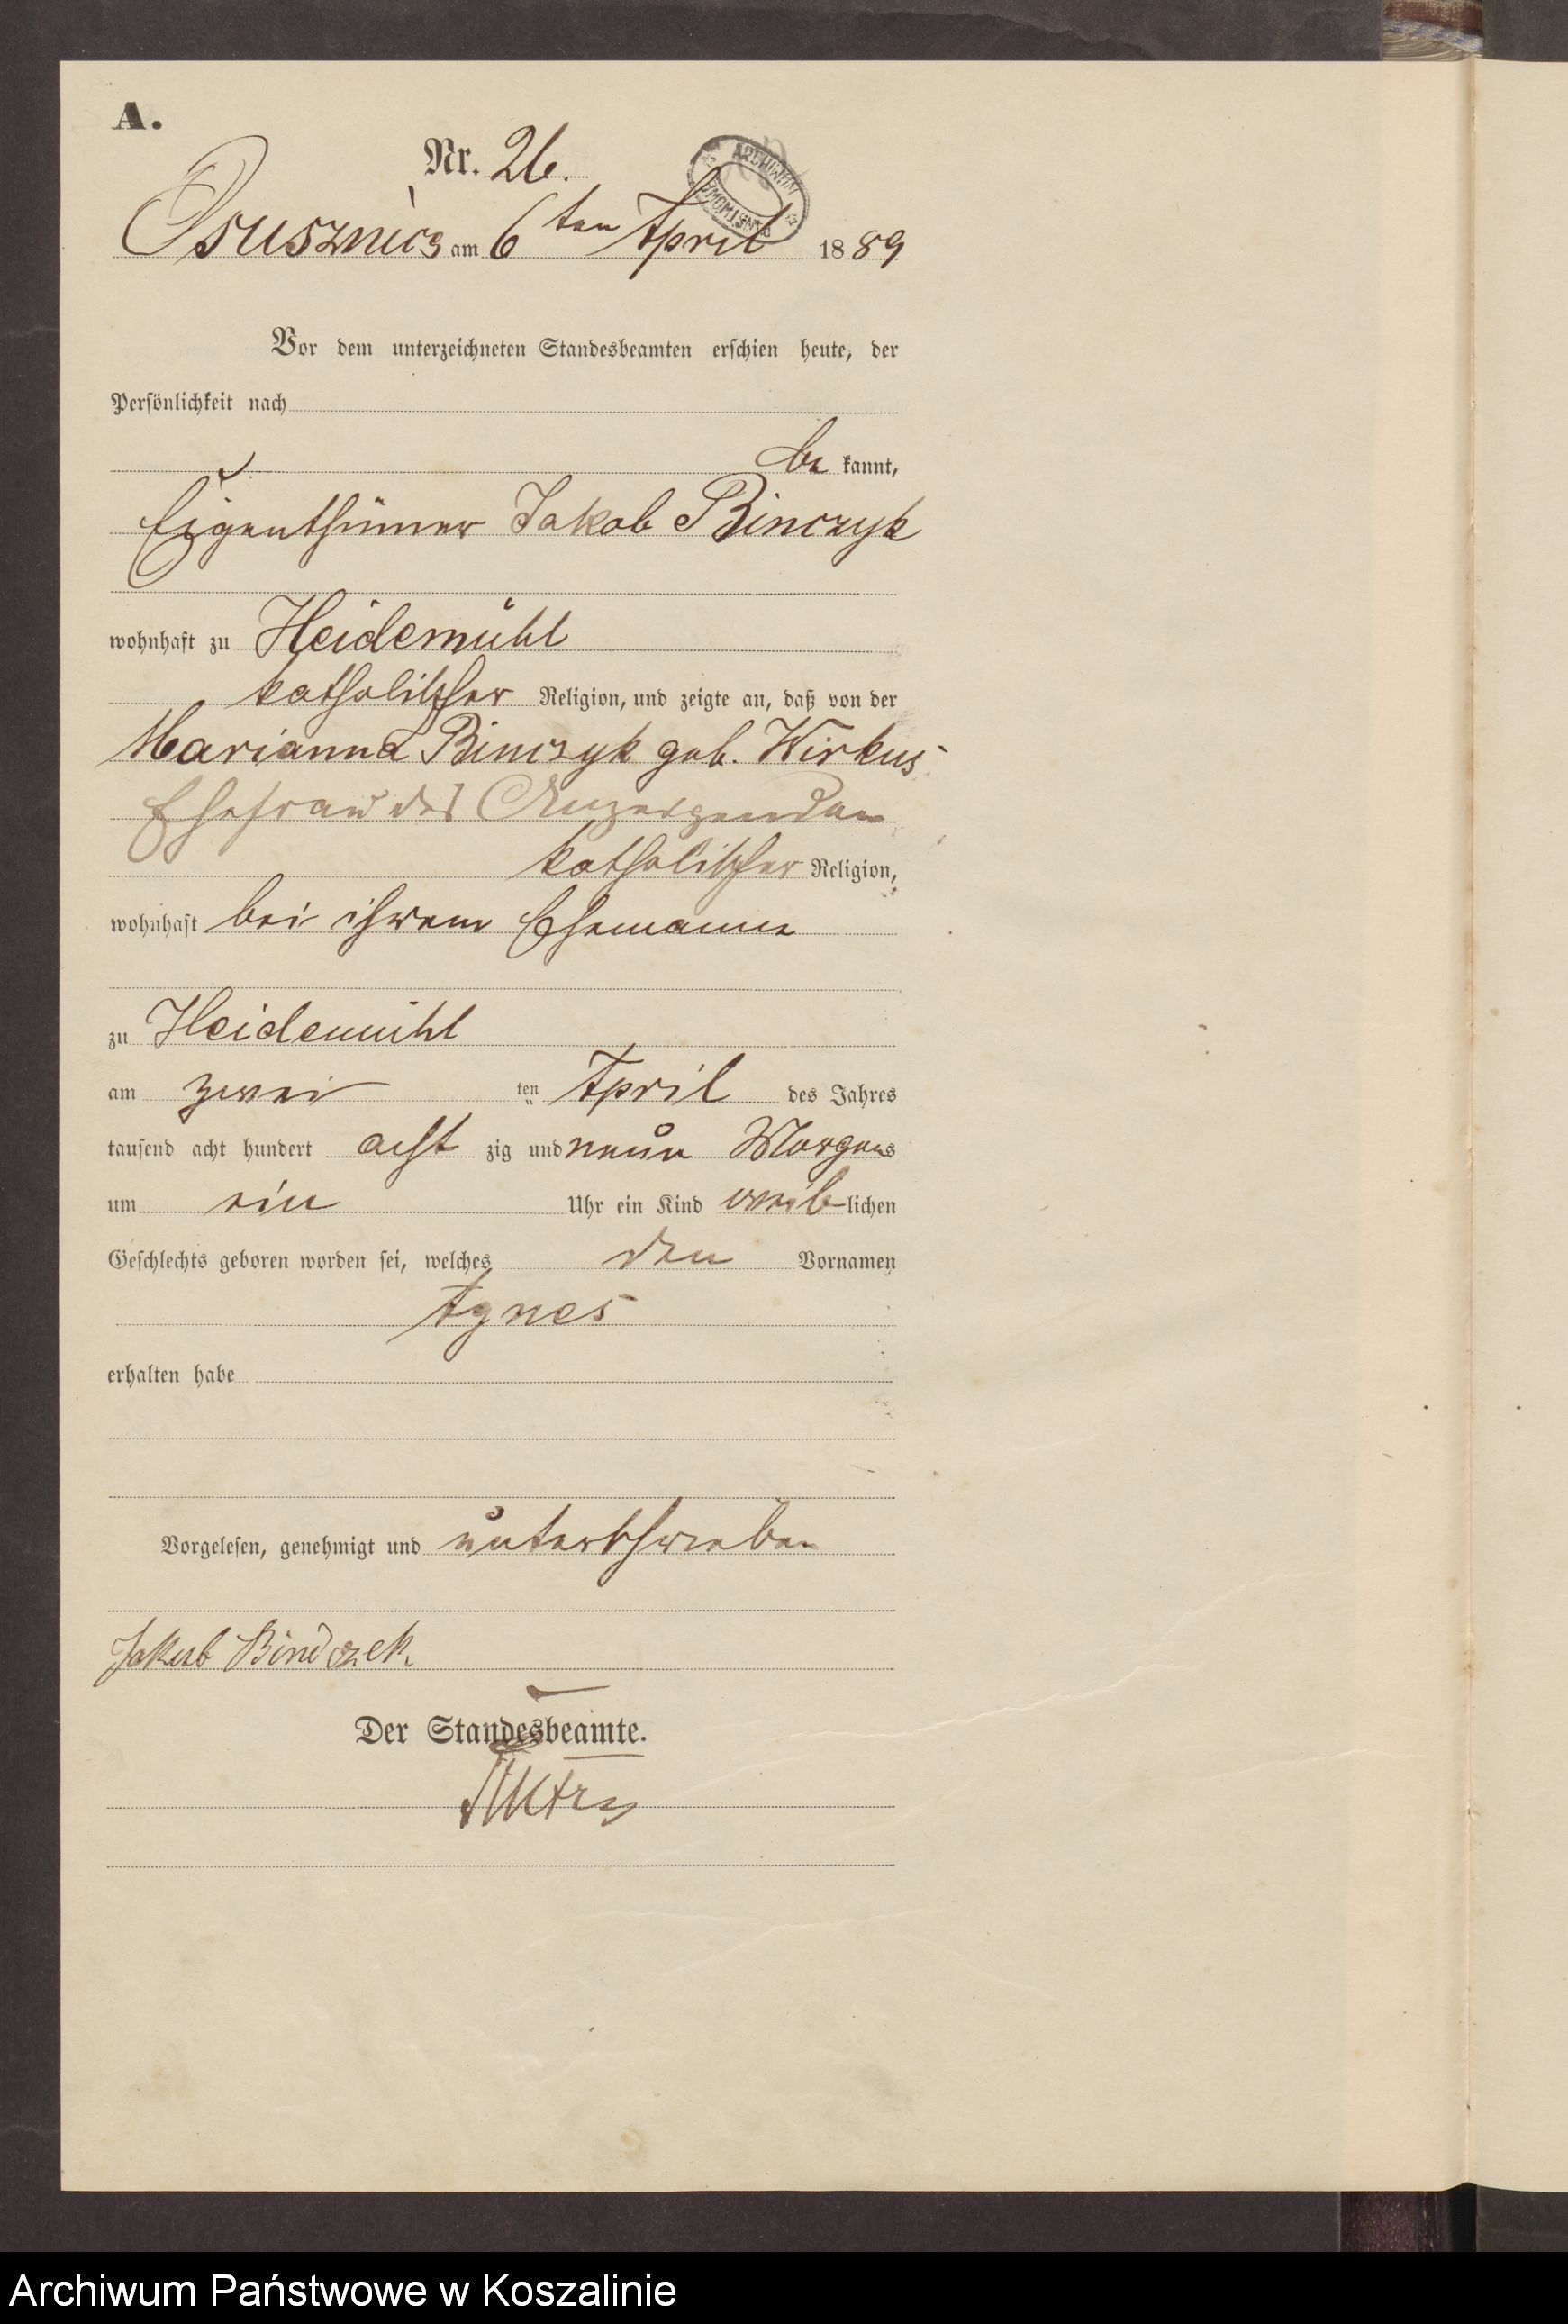 A.
Nr. 26.
ARCHIWUM
PAŃSTWOWE
Osusznica am 6ten April 1889
Vor dem unterzeichneten Standesbeamten erschien heute, der
Persönlichkeit nach
be kannt,
Eigenthümer Jakob Binczyk
wohnhaft zu Heidemühl
katholischer Religion, und zeigte an, daß von der
Marianna Binczyk geb. Wirkus
Ehefrau des Anzeigenden
katholischer Religion,
wohnhaft bei ihrem Ehemanne
zu Heidemühl
am zwei ten April des Jahres
tausend acht hundert acht zig und neun Morgens
um ein Uhr ein Kind weib-lichen
Geschlechts geboren worden sei, welches den Vornamen
Agnes
erhalten habe
Vorgelesen, genehmigt und unterschrieben
Jakub Bindczek
Der Standesbeamte.
Archiwum Państwowe w Koszalinie